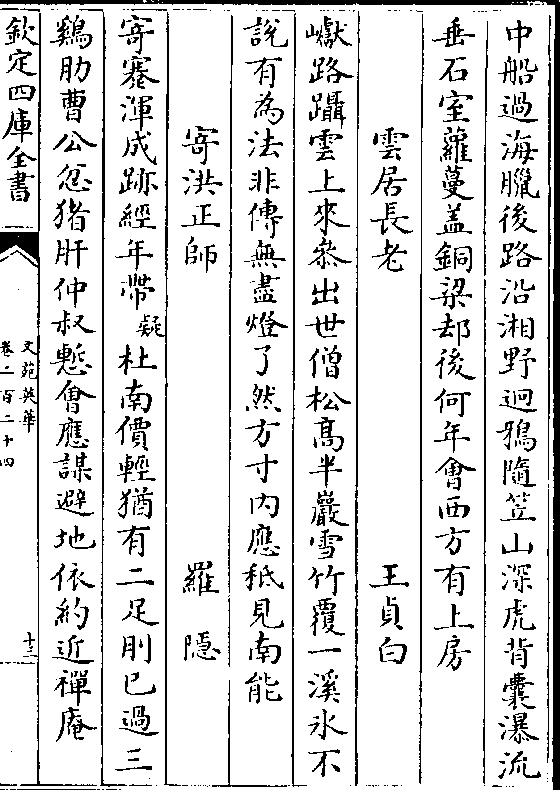 中船過海臘後路沿湘野迥鴉隨笠山深虎背囊瀑流
垂石室蘿蔓盖銅梁却後何年會西方有上房
雲居長老　王貞白
巘路躡雲上來叅出世僧松髙半巖雪竹覆一溪氷不
說有為法非傳無盡燈了然方寸内應秪見南能
寄洪正師　羅隱
寄蹇渾成跡經年帶疑杜南價輕猶有二足刖已過三
鷄肋曹公忿猪肝仲叔慙㑹應謀避地依約近禪庵
欽定四庫全書
文苑英華
卷二百二十四
十三